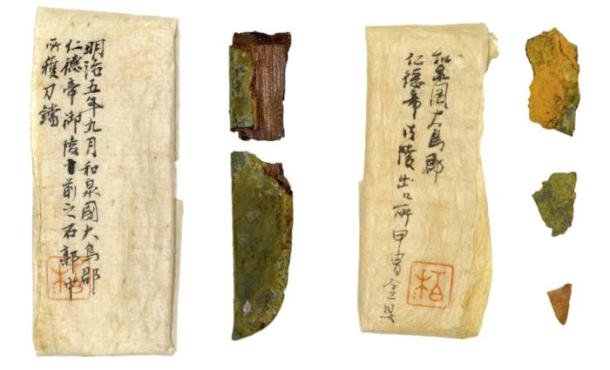 明治五年九月和泉國大鳥郡
仁徳帝御陵前之石郭中
所獲刀鐺
柏
和泉国大鳥郡
仁徳帝御陵出口所甲冑金具
柏